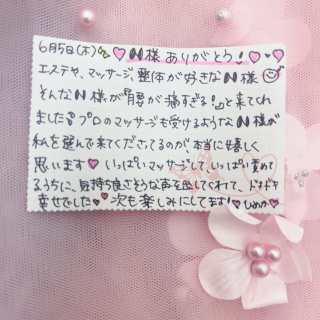 6月5日(木)🎶💗N様ありがとう!💗・💗
エステや、マッサージ、整体が好きなN様
そんなN様が『腰が痛すぎる!』と来てくれ
ました♪プロのマッサージも受けるようなN様が
私を選んで来てくださてるのが、本当に嬉しく
思います💗いっぱいマッサージして、いっぱい責めて
るうちに、気持ち良さそうな声を出してくれて、ドキドキ
幸せでした💗♥次も楽しみにしてます!♥ひめか♥